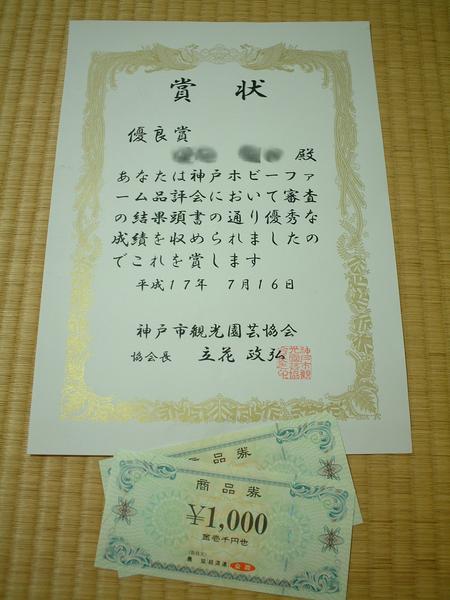 賞 状
優良賞
殿
あなたは神戸ホビーファ
ーム品評会において審査
の結果頭書の通り優秀な
成績を収められましたの
でこれを賞します
平成17年 7月16日
神戸市観光園芸協会
協会長 立花 政弘
品券
商品券
¥1,000
金壱千円也